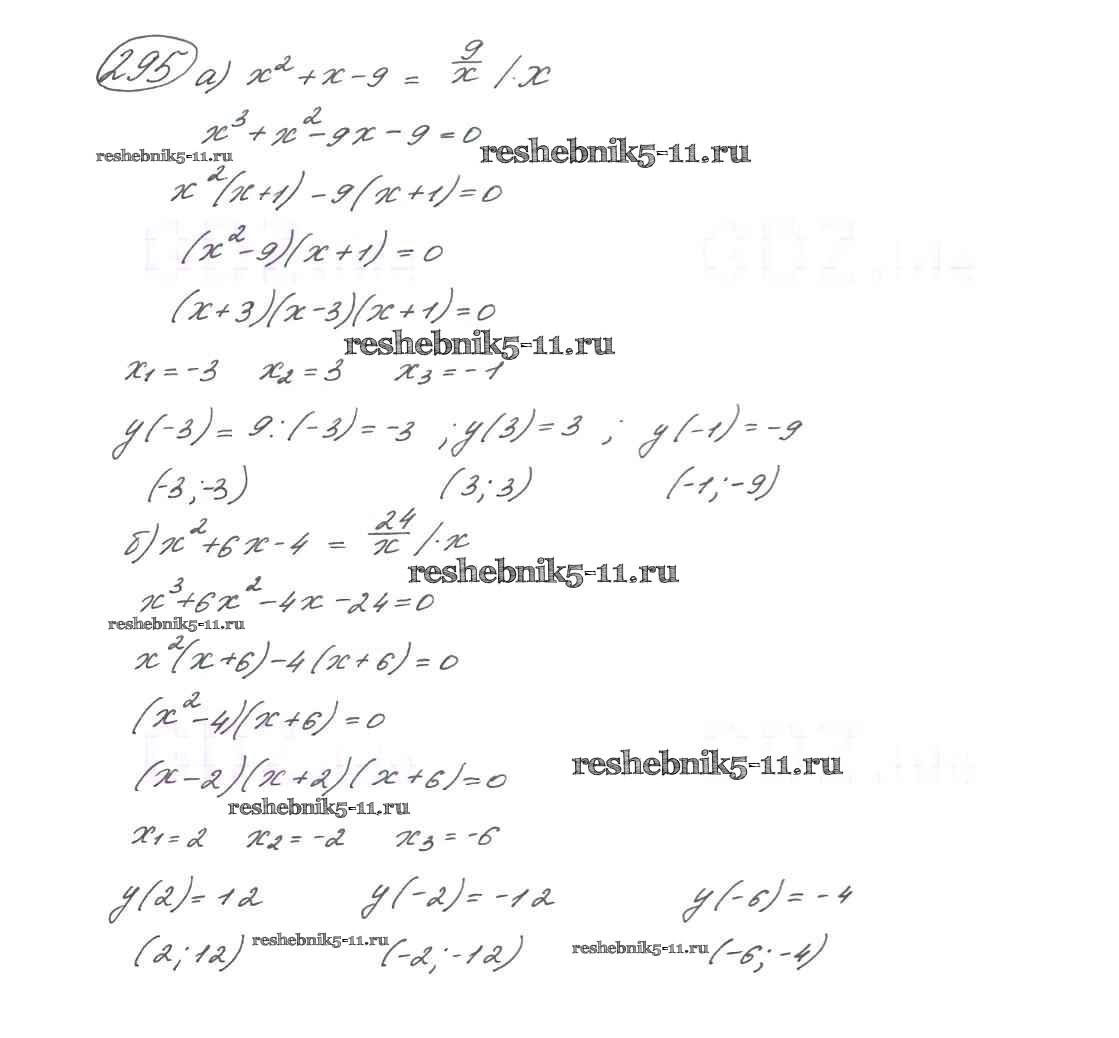 295 а) x² + x - 9 = 9/x /·x
x³ + x² - 9x - 9 = 0
reshebnik5-11.ru reshebnik5-11.ru
x²(x+1) - 9(x+1) = 0
(x² - 9)(x+1) = 0
(x+3)(x-3)(x+1) = 0
reshebnik5-11.ru
x₁ = -3 x₂ = 3 x₃ = -1
y(-3) = 9:(-3) = -3 ; y(3) = 3 ; y(-1) = -9
(-3; -3) (3; 3) (-1; -9)
б) x² + 6x - 4 = 24/x /·x
reshebnik5-11.ru
x³ + 6x² - 4x - 24 = 0
reshebnik5-11.ru
x²(x+6) - 4(x+6) = 0
(x² - 4)(x+6) = 0
reshebnik5-11.ru
(x-2)(x+2)(x+6) = 0
reshebnik5-11.ru
x₁ = 2 x₂ = -2 x₃ = -6
y(2) = 12 y(-2) = -12 y(-6) = -4
(2; 12) reshebnik5-11.ru (-2; -12) reshebnik5-11.ru (-6; -4)